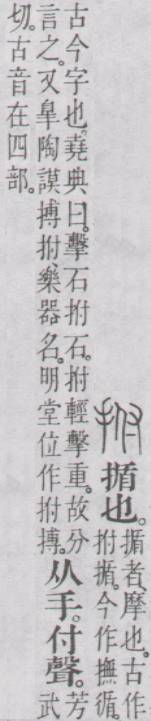 拊 揗也。揗者、摩也。古作
拊揗。今作撫循。
古今字也。堯典曰。擊石拊石。拊輕擊重。故分
言之。又皋陶謨搏拊、樂器名。明堂位作拊搏。
从手。付聲。芳武
切。古音在四部。